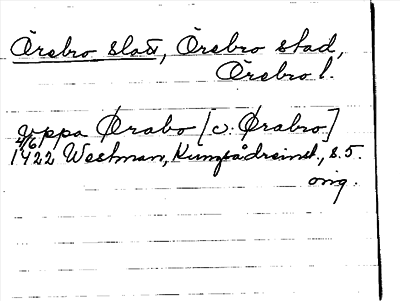 Örebro slott, Örebro stad,
Örebro l.
uppa Ørabo [v. Ørabro]
4/6
1422 Westman, Kungsådreinst., s. 5.
orig.